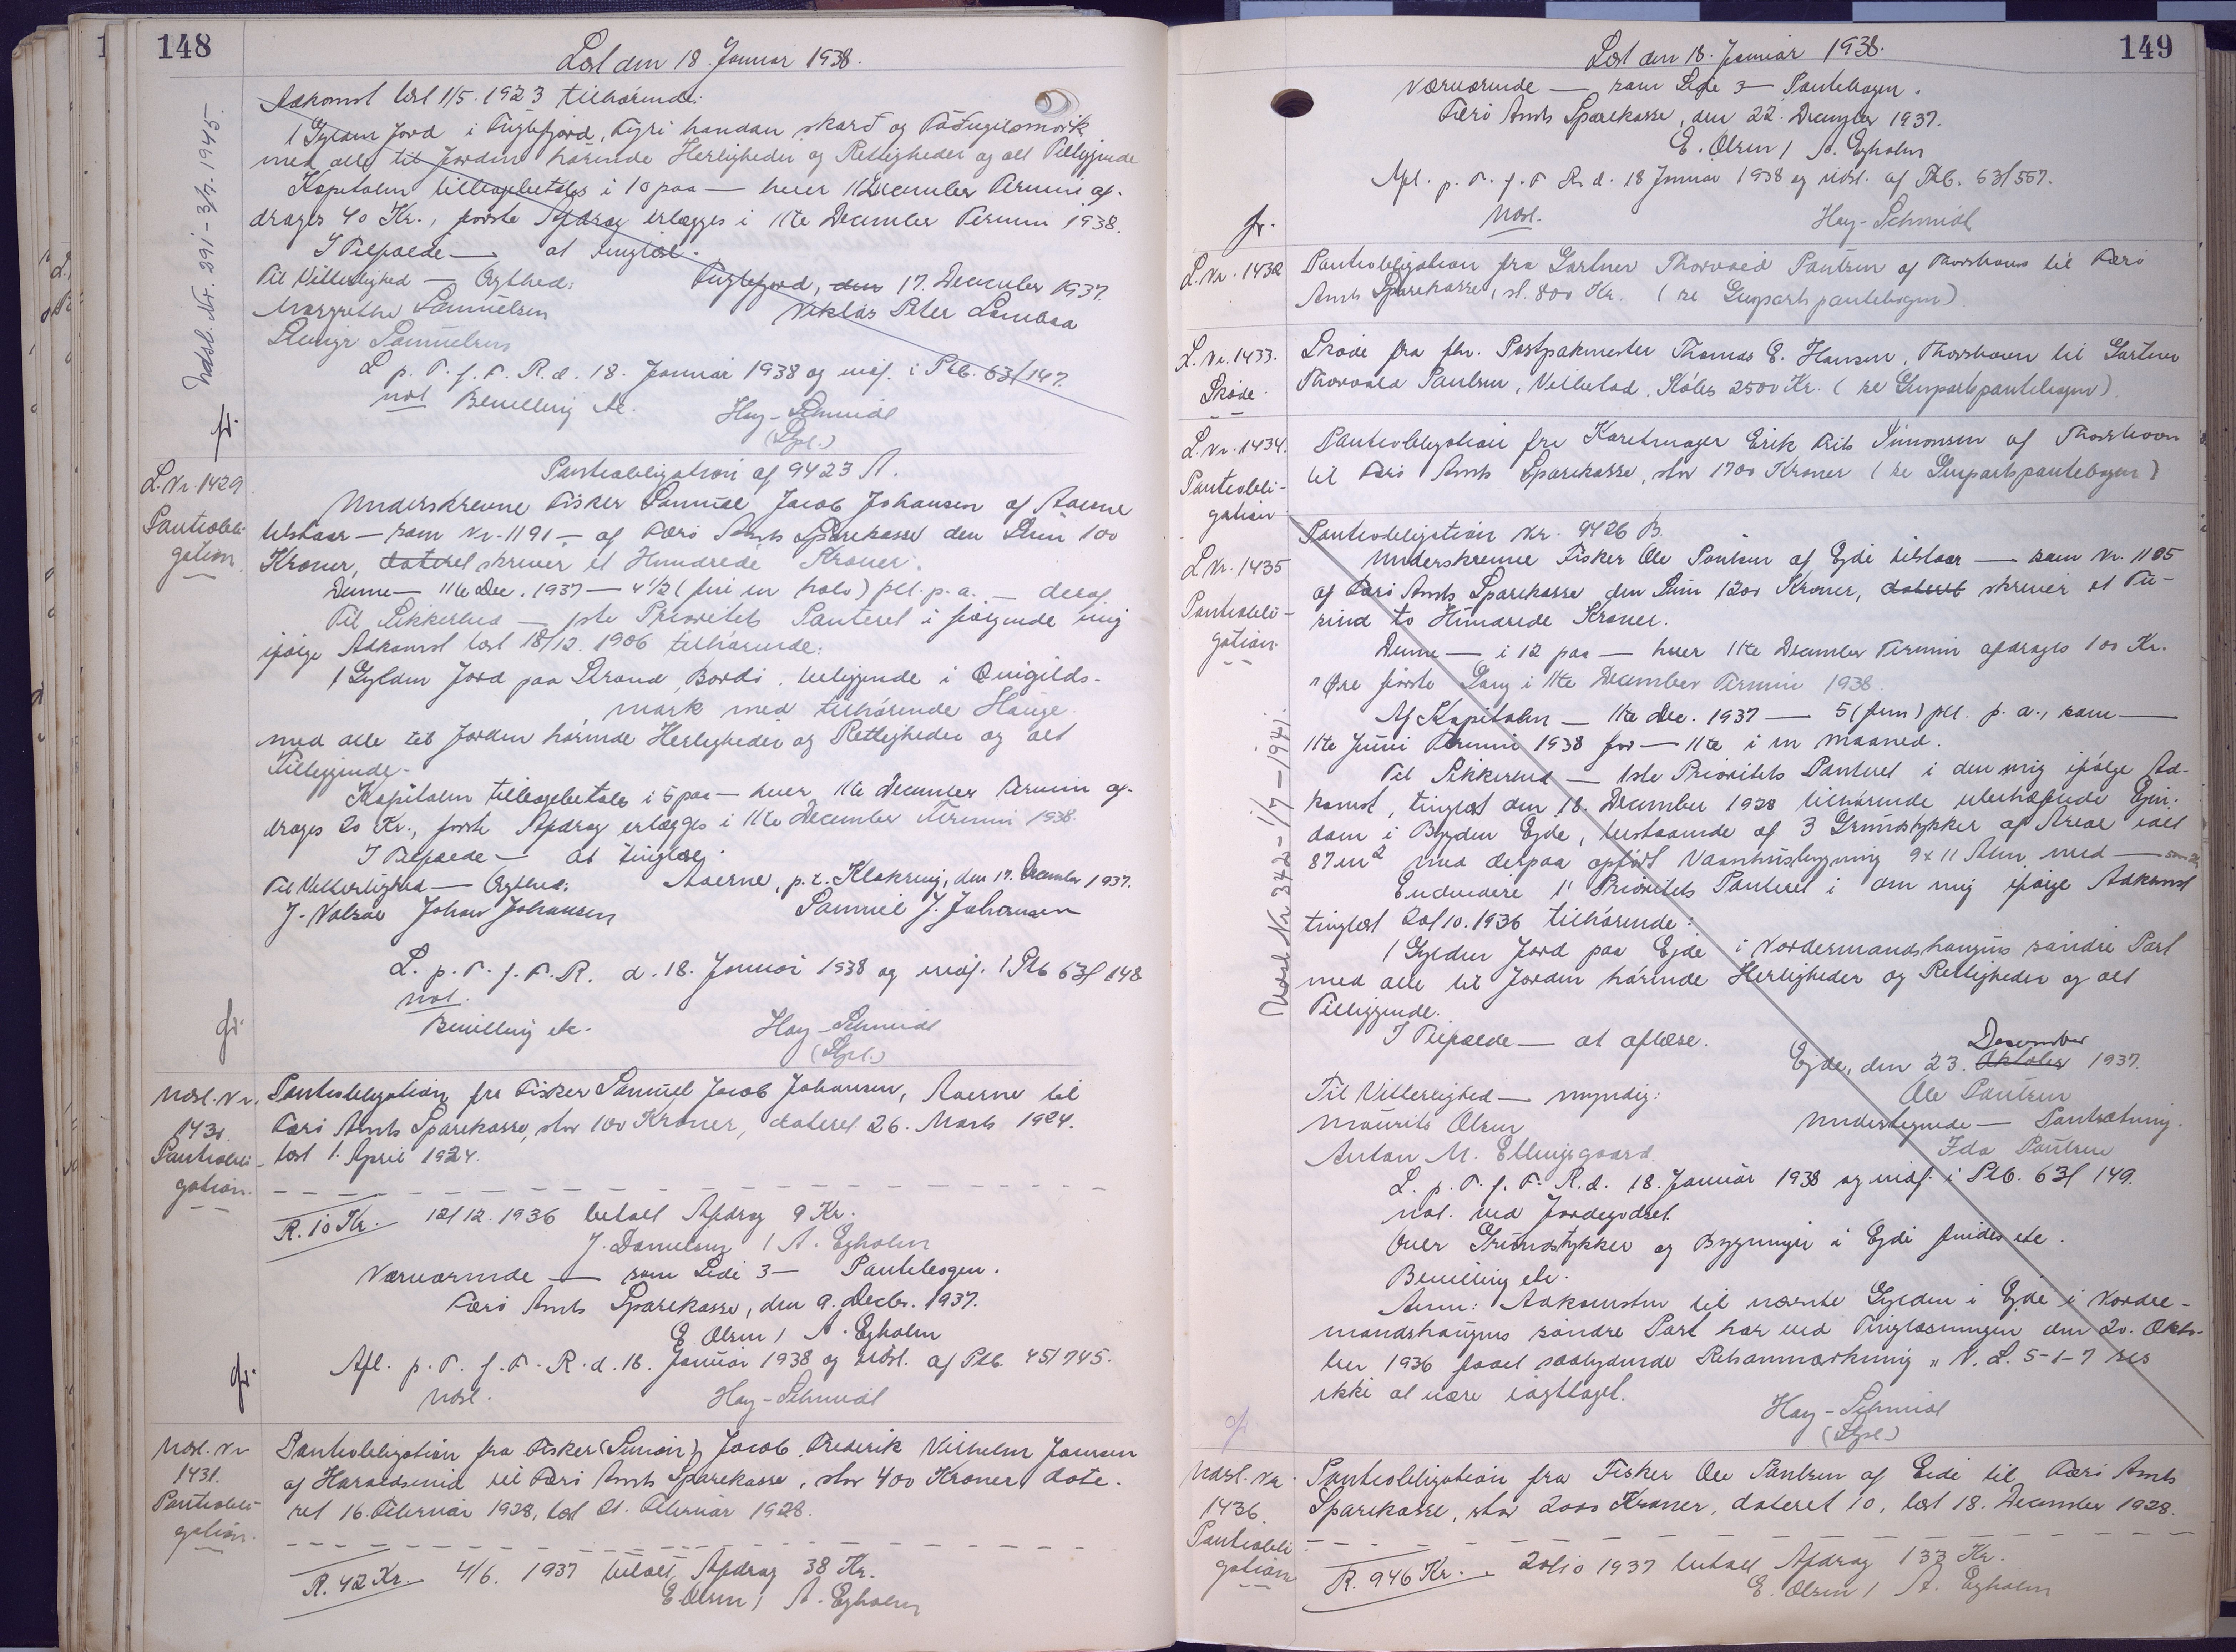 148
Læst den 18. Januar 1938.
Udsl. Nr. 291 - 3/7. 1945.
Adkomst læst 1/5. 1923 tilhørende:
1 Gylden Jord i Fuglefjord, Fyri handan skarð og
med alle til Jorden hørende Herligheder og Rettigheder og alt Tilliggende
Kapitalen tilbagebetales i 10 paa — hver 11 December Termin af-
drages 40 Kr., første Afdrag erlægges i 11te December Termin 1938.
I Tilfælde — at tinglæse.
Til Vitterlighed — Ægthed: Fuglefjord, den 17. December 1937.
Margrethe Samuelsen Niklas Peter Lambaa
Samuelsen
L. p. T. f. F. R. d. 18. Januar 1938 og indf. i Ptb. 63/147.
not Bevilling etc. Hay-Schmidt
(Spl.)
fr.
L. Nr. 1429
Pantobli-
gation
Pantobligation af 9423 A.
Underskrevne Fisker Samuel Jacob Johansen af Aaerne
tilstaar — som Nr. 1191 — af Færø Amts Sparekasse den Sum 100
Kroner, dateret skriver et Hundrede Kroner.
Denne — 11te Dec. 1937 — 4 1/2 (fire en halv) pCt. p. a. — deraf
Til Sikkerhed — 1ste Prioritets Panteret i følgende mig
ifølge Adkomst læst 18/12. 1906 tilhørende:
1 Gylden Jord paa Strand, Bordi, beliggende i Quigilds-
mark med tilhørende Hauge.
med alle til Jorden hørende Herligheder og Rettigheder og alt
Tilliggende.
Kapitalen tilbagebetales i 5 paa — hver 11te December Termin af-
drages 20 Kr., første Afdrag erlægges i 11te December Termin 1938.
I Tilfælde — at tinglæse.
Til Vitterlighed — Ægthed: Aaerne, p.t. Klaksvig, den 17. December 1937.
J. Johan Johansen Samuel J. Johansen
L. p. T. f. F. R. d. 18. Januar 1938 og indf. i Ptb 63/148
not.
Bevilling etc. Hay-Schmidt
(Spl.)
fr.
Udsl. Nr.
1430.
Pantobli-
gation.
Pantobligation fra Fisker Samuel Jacob Johansen, Aaerne til
Færø Amts Sparekasse, stor 100 Kroner, dateret 26. Marts 1924.
læst 1. April 1924.
R. 10 Kr. 12/12. 1936 betalt Afdrag 9 Kr.
J. Danielsen / A. Egholm
Nærværende — som Side 3 — Pantebogen.
Færø Amts Sparekasse, den 9. Decbr. 1937.
E. Olsen / A. Egholm
Afl. p. T. f. F. R. d. 18. Januar 1938 og udsl. af Ptb. 45/745.
Udsl. Hay-Schmidt
fr.
Udsl. Nr
1431.
Pantobli-
gation.
Pantobligation fra Fisker (Senior) Jacob Frederik Vilhelm Joensen
af Haraldssund til Færø Amts Sparekasse, stor 400 Kroner, date-
ret 16. Februar 1928, læst 21. Februar 1928.
R. 42 Kr. 4/6. 1937 betalt Afdrag 38 Kr.
E. Olsen / A. Egholm
149
Læst den 18. Januar 1938.
Nærværende — som Side 3 — Pantebogen.
Færø Amts Sparekasse, den 22. December 1937.
E. Olsen / A. Egholm
Afl. p. T. f. F. R. d. 18 Januar 1938 og udsl. af Ptb. 53/557.
Udsl. Hay-Schmidt
fr.
L. Nr. 1432
Pantobligation fra Gartner Thorvald Poulsen af Thorshavn til Færø
Amts Sparekasse, st. 800 Kr. (se Genpartspantebogen)
L. Nr. 1433.
Skøde.
Skøde fra fhv. Postpakmester Thomas E. Hansen, Thorshavn til Gartner
Thorvald Poulsen, Købes 2500 Kr. (se Genpartspantebogen).
L. Nr. 1434.
Pantobli-
gation
Pantobligation fra Karetmager Erik Frits Simonsen af Thorshavn
til Færø Amts Sparekasse, stor 1700 Kroner (se Genpartspantebogen)
L. Nr. 1435
Pantobli-
gation.
Udsl. Nr 342 - 1/7 - 1941.
Pantobligation Nr. 9426 B.
Underskrevne Fisker Ole Poulsen af Ejde tilstaar — som Nr. 1185
af Færø Amts Sparekasse den Sum 1200 Kroner, dateret skriver et Tu-
sind to Hundrede Kroner.
Denne — i 12 paa — hver 11te December Termin afdrages 100 Kr.
" Øre første Gang i 11te December Termin 1938.
Af Kapitalen — 11te Dec. 1937 — 5 (fem) pCt. p. a., som —
11te Juni Termin 1938 for — 11te i en Maaned.
Til Sikkerhed — 1ste Prioritets Panteret i den mig ifølge Ad-
komst, tinglæst den 18. December 1928 tilhørende ubehæftede Ejen-
dom i Bygden Ejde, bestaaende af 3 Grundstykker af Areal ialt
87 m² med derpaa opført Vaanhusbygning 9 x 11 Alen med —
Endvidere 1' Prioritets Panteret i om mig ifølge Adkomst
tinglæst 20/10. 1936 tilhørende:
1 Gylden Jord paa Ejde i Nordermandshaugens søndre Part
med alle til Jorden hørende Herligheder og Rettigheder og alt
Tilliggende.
I Tilfælde — at aflæse.
Ejde, den 23. Oktober December 1937.
Til Vitterlighed — myndig: Ole Poulsen
Maurits Olsen Undertegnede — Pantsætning.
Anton M. Ellingsgaard. Ida Poulsen
L. p. T. f. F. R. d. 18. Januar 1938 og indf. i Ptb. 63/149.
not. ved Jordegodset.
Over Grundstykker og Bygninger i Ejde findes etc.
Bevilling etc.
Anm: Adkomsten til nævnte Gylden i Ejde i Nordre-
mandshaugens søndre Part har ved Tinglæsningen den 20. Okto-
ber 1936 faaet saalydende Retsanmærkning „ N. L. 5-1-7 ses
ikke at være iagttaget.
Hay-Schmidt
(Spl.)
Udsl. Nr.
1436.
Pantobli-
gation
Pantobligation fra Fisker Ole Poulsen af Eide til Færø Amts
Sparekasse, stor 2000 Kroner, dateret 10, læst 18. December 1928.
R. 946 Kr. 20/10 1937 betalt Afdrag 133 Kr.
E. Olsen / A. Egholm